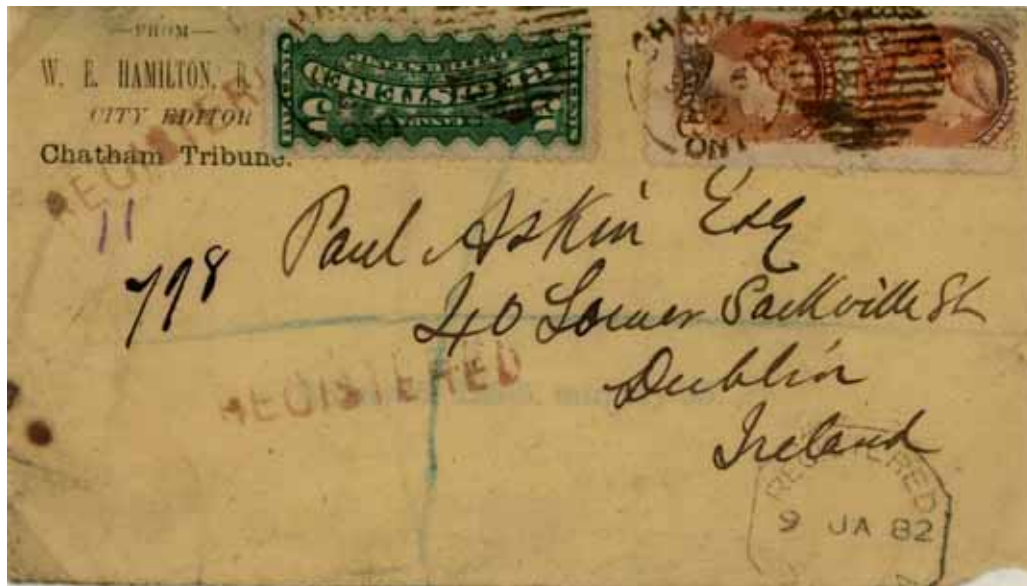 —FROM—
W. E. HAMILTON, B.
CITY EDITOR
Chatham Tribune.
REGISTERED
FIVE CENTS
REGISTERED
5 5
CHATHAM
ONT
11
798
Paul Askin Esq
40 Lower Sackville St
Dublin
Ireland
REGISTERED
REGISTERED
9 JA 82